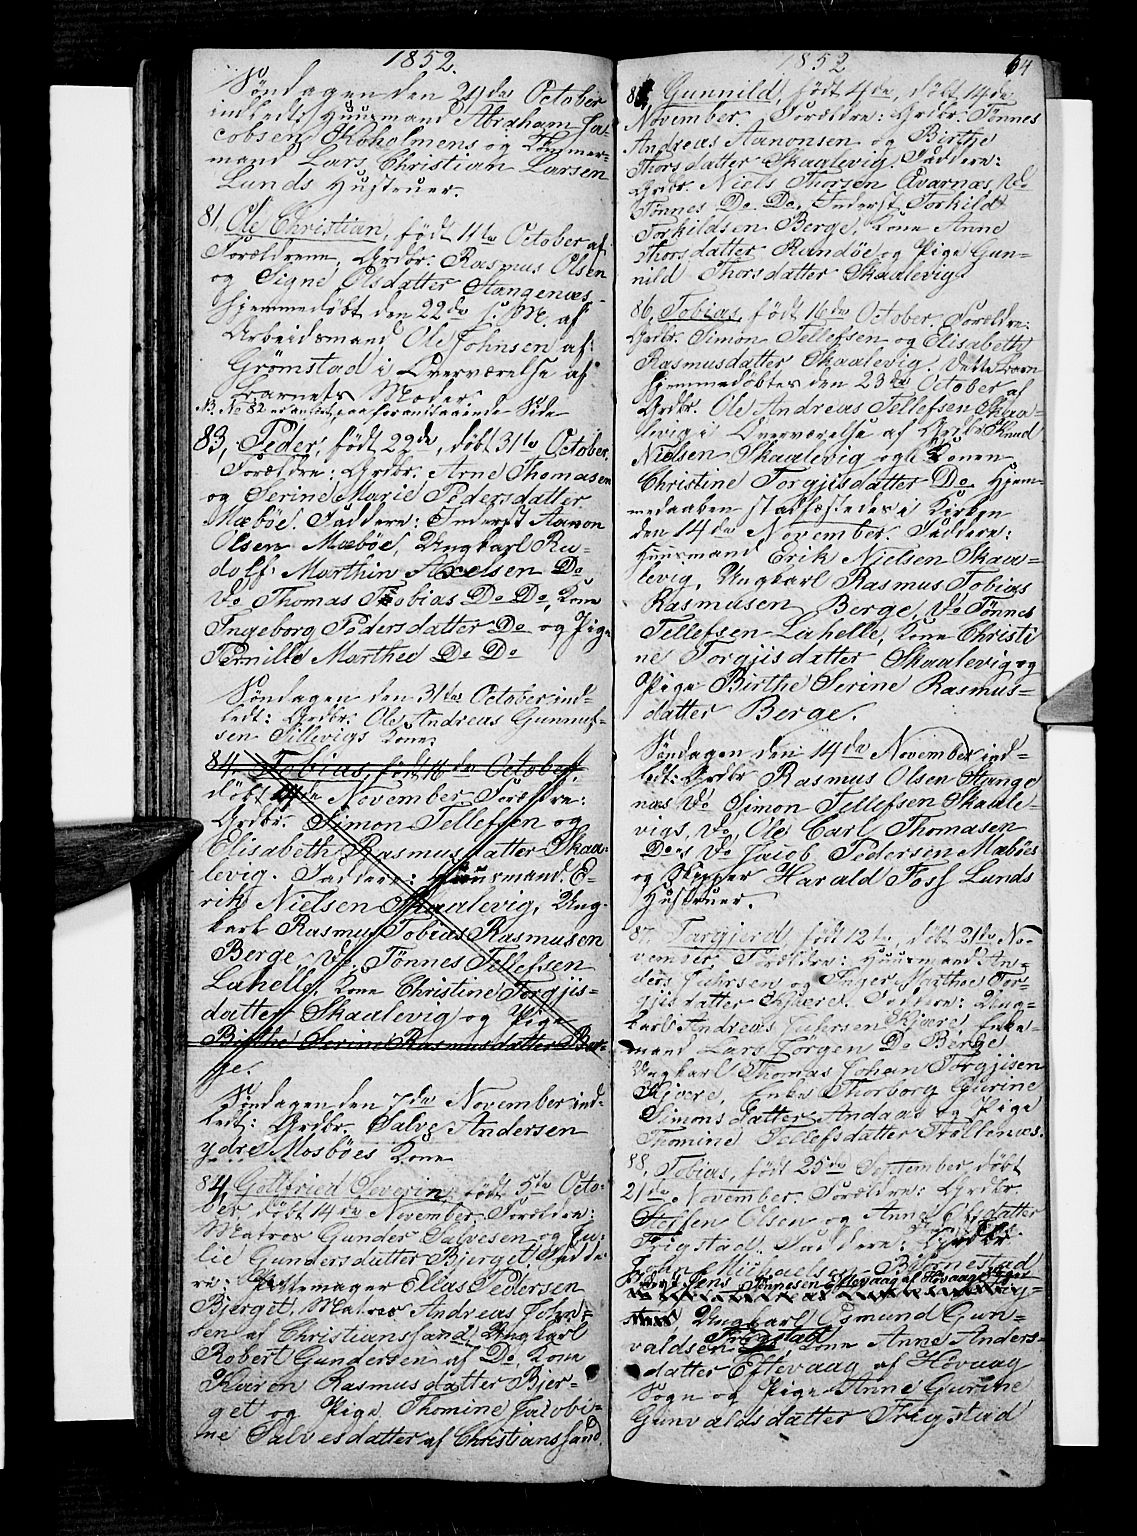 1852.
Søndagen den 24de October
indledt: Huusmand Abraham Ja-
cobsen Koholmens og Tømmer-
mand Lars Christian Larsen
Lunds Hustruer.
81, Ole Christian, født 11te October af
Forældrene, Grdbr. Rasmus Olsen
og Signe Olsdatter Stangenæs.
Hjemmedøbt den 22de s. M. af
Arbeidsmand Ole Johnsen af
Grømstad i Overværelse af
Barnets Moder.
NB. No 82 er anført paa foranstaaende Side
83, Peder, født 22de, døbt 31te October.
Forældre: Grdbr. Arne Thomasen
og Serine Marie Pedersdatter
Mæbøe. Faddere: Inderst Aanon
Olsen Mæbøe, Ungkarl Ru-
dolf Marthin Axelsen Do
Do Thomas Tobias Do Do, Kone
Ingeborg Pedersdatter Do og Pige
Pernille Marthee Do Do
Søndagen den 31te October ind-
ledt: Grdbr. Ole Andreas Gunnuf-
sen Sillevigs Kone.
84. Tobias, født 16de October,
døbt 14de November. Forældre:
Grdbr. Simon Tellefsen og
Elisabeth Rasmusdatter Skaa-
levig. Faddere: Huusmand E-
rik Nielsen Skaalevig, Ung-
karl Rasmus Tobias Rasmusen
Berge, Do Tønnes Tellefsen
Lahelle, Kone Christine Torgjis-
datter Skaalevig og Pige
Birthe Serine Rasmusdatter Ber-
ge.
Søndagen den 7de November ind-
ledt: Grdbr. Salve Andersen
ydre Mosbøes Kone
84, Gotfried Severin, født 5te Octo-
ber døbt 14de November. Forældre:
Matros Gunder Salvesen og Ju-
lie Gundersdatter Bjerget. Fadde-
re: Pottemager Ellas Pedersen
Bjerget, Matros Andreas John-
sen af Christianssand, Ungkarl
Robert Gundersen af Do, Kone
Karen Rasmusdatter Bjer-
get og Pige Thomine Jacobi-
ne Salvesdatter af Christianssand.
1852
64
85, Gunnild, født 4de, døbt 14de
November. Forældre: Grdbr. Tønnes
Andreas Aanonsen og Birthe
Thorsdatter Skaalevig. Faddere:
Grdbr. Niels Thorsen Qvarnæs, Do
Tønnes Do Do, Inderst Torkild
Torkildsen Berge, Kone Anne
Thorsdatter Randøe og Pige Gun-
nild Thorsdatter Skaalevig
86, Tobias, født 16de October. Forældre:
Grdbr. Simon Tellefsen og Elisabeth
Rasmusdatter Skaalevig. Dette Barn
hjemmedøbtes den 23de October af
Grdbr. Ole Andreas Tellefsen Skaa-
levig i Overværelse af Grdbr. Knud
Nielsen Skaalevig og Konen
Christine Torgjisdatter Do. Hjem-
medaaben stadfæstedes i Kirken
den 14de November. Faddere:
Huusmand Erik Nielsen Skaa-
levig, Ungkarl Rasmus Tobias
Rasmusen Berge, Do Tønnes
Tellefsen Lahelle, Kone Christi
ne Torgjisdatter Skaalevig og
Pige Birthe Serine Rasmus-
datter Berge.
Søndagen den 14de November ind-
ledt: Grdbr Rasmus Olsen Stange
næs, Do Simon Tellefsen Skaale-
vigs, Do Ole Carl Thomasen
Do's Do Jacob Pedersen Mæbøes
og Skipper Harald Foss Lunds
Hustruer.
87. Targjerd, født 12te, døbt 21de No-
vember. Forældre: Huusmand An-
ders Juhrsen og Inger Mathea Tor-
gjisdatter Kjære. Faddere: Ung-
karl Andreas Juhrsen Kjære, Enke-
mand Lars Jørgen Do Berge
Ungkarl Thomas Johan Torgjisen
Kjære, Enke Thorborg Gurine
Simonsdatter Andaas og Pige
Thomine Tellefsdatter Trollenæs.
88, Tobias, født 25de September, døbt
21de November. Forældre: Grdbr.
Steffen Olsen og Anne datter
Frigstad. Faddere: Grdbr
John Michaelsen Bjørnestad
Jens Tønnesen Eftevaag af Høvaag
Ungkarl Osmund Gun-
valdsen Frigstad, Kone Anne Anders-
datter Eftevaag af Høvaag
Sogn og Pige Anne Gurine
Gunvaldsdatter Frigstad